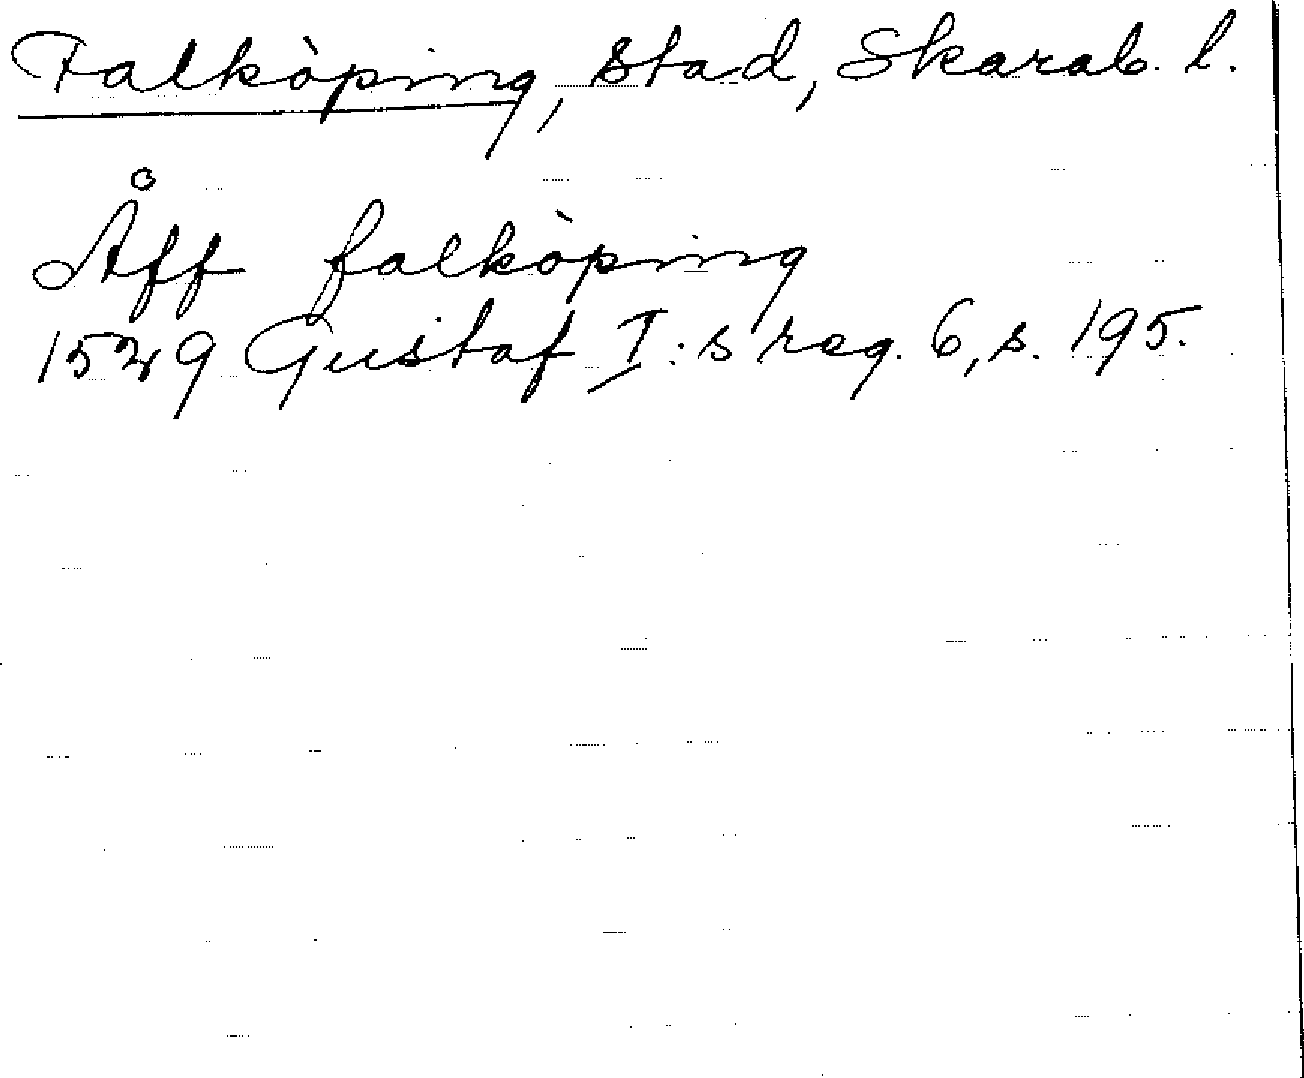 Falköping, stad, Skarab. l.
Åff falköping
1529 Gustaf I:s reg. 6, s. 195.